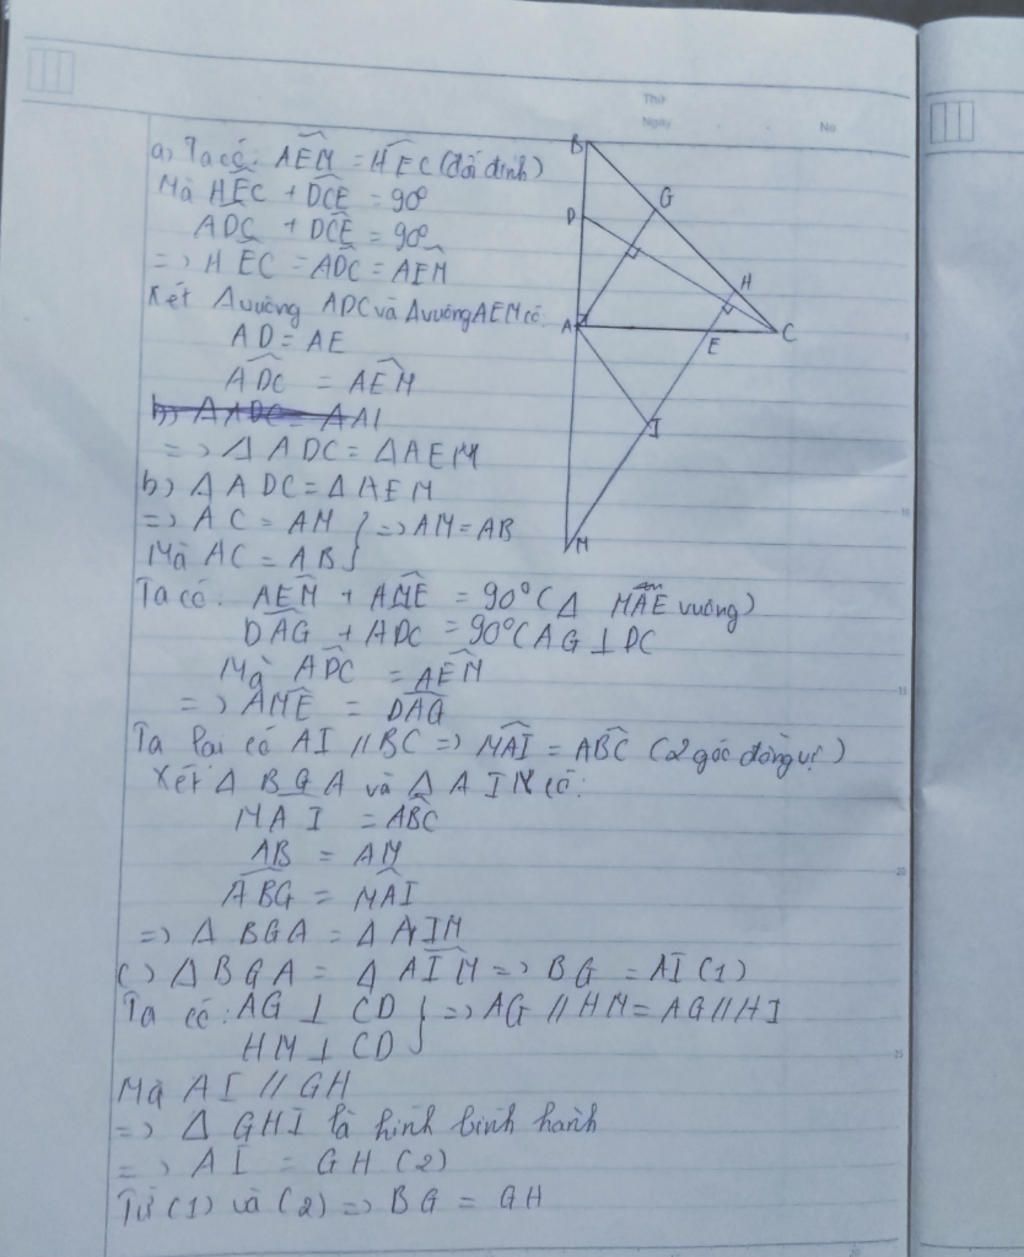 Thứ
Ngày
No
a) Ta có: AEM = HEC (đối đỉnh)
Mà HEC + DCE = 90°
ADC + DCE = 90°
=> HEC = ADC = AEM
Xét Δ vuông ADC và Δ vuông AEM có:
AD = AE
ADC = AEM
=> Δ ADC = Δ AEM
b) Δ ADC = Δ AEM
=> AC = AM } => AM = AB
Mà AC = AB
Ta có: AEM + AME = 90° (Δ MAE vuông)
DAG + ADC = 90° (AG ⊥ DC
Mà ADC = AEM
=> AME = DAG
Ta lại có AI // BC => MAI = ABC (2 góc đồng vị)
Xét Δ BGA và Δ AIM có:
MAI = ABC
AB = AM
ABG = MAI
=> Δ BGA = Δ AIM
c) Δ BGA = Δ AIM => BG = AI (1)
Ta có: AG ⊥ CD } => AG // HM = AG // HI
HM ⊥ CD
Mà AI // GH
=> Δ GHI là hình bình hành
=> AI = GH (2)
Từ (1) và (2) => BG = GH
B
G
D
H
A
E
C
I
M
10
15
20
25